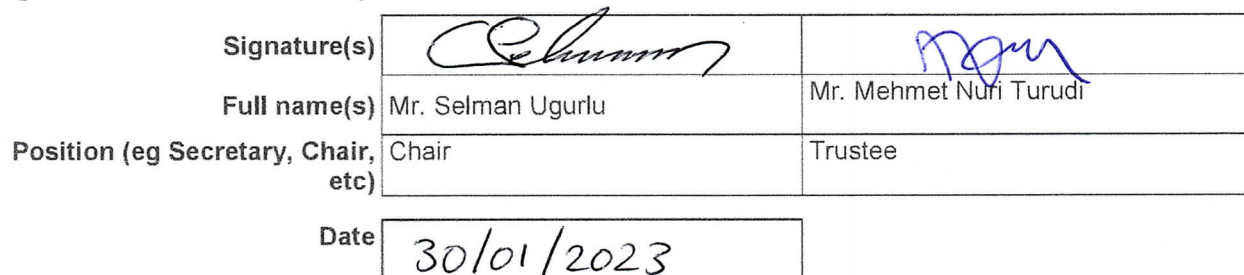 Signature(s)
Full name(s) Mr. Selman Ugurlu Mr. Mehmet Nuri Turudi
Position (eg Secretary, Chair, etc) Chair Trustee
Date 30/01/2023